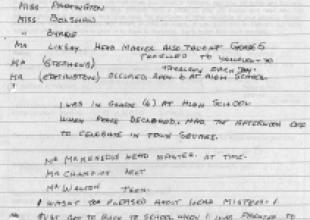 MISS PADDINGTON
MISS BOLSHAW
" 
MR LINDSAY. HEAD MASTER ALSO TAUGHT GRADE 5
MR (STEPHENS) TRAVELLED TO
EACH DAY
MR (EDDINGTON) OCCUPIED ROOM 6 AT HIGH SCHOOL
I WAS IN GRADE (6) AT HIGH SCHOOL
WHEN PEACE DECLARED. HAD THE AFTERNOON OFF
TO CELEBRATE IN TOWN SQUARE.
MR HEAD MASTER. AT TIME.
MR CHAMPION NEXT
MR WALTON THEN.
I WASN'T TOO PLEASED ABOUT HEAD MASTER!
GOT TO BACK TO SCHOOL WHEN I WAS